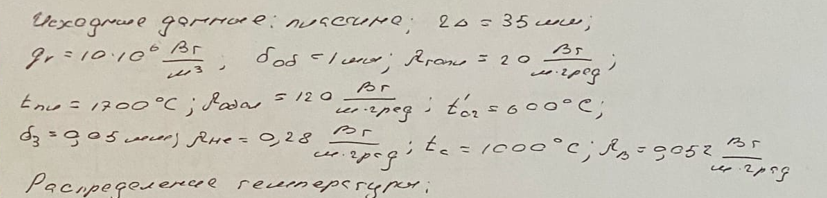 Исходные данные: пластина; 2Δ = 35 мм;
qᵥ = 10·10⁶ Вт/м³, δоб = 1 мм; λтопл = 20 Вт/м·град;
tпл = 1700°C; λобол = 120 Вт/м·град; t'с2 = 600°C;
δ₃ = 0,05 мм; λHe = 0,28 Вт/м·град; tс = 1000°C; λв = 0,052 Вт/м·град
Распределение температуры: